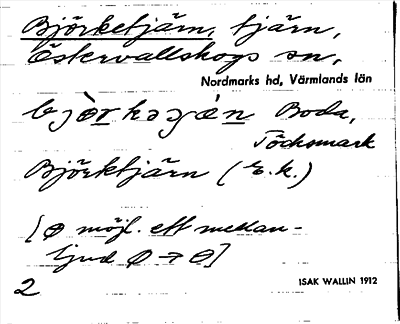 Björketjärn, tjärn,
Östervallskogs sn,
Nordmarks hd, Värmlands län
Boda,
Töcksmark
Björktjärn (E.k.)
[ø möjl. ett mellan-
ljud ø → ɵ]
2
ISAK WALLIN 1912